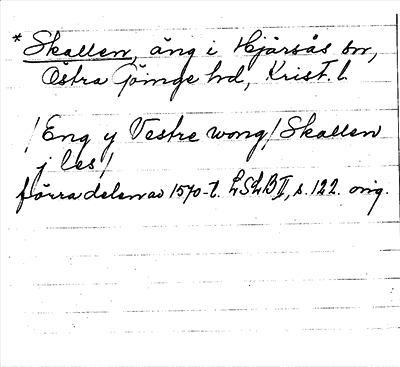 * Skallen, äng i Hjärsås sn,
Östra Göinge hd, Krist. l.
/Eng y Vestre wong/ Skallen
j les/
förra delen av 1570-t. LSLB II, s. 122. orig.